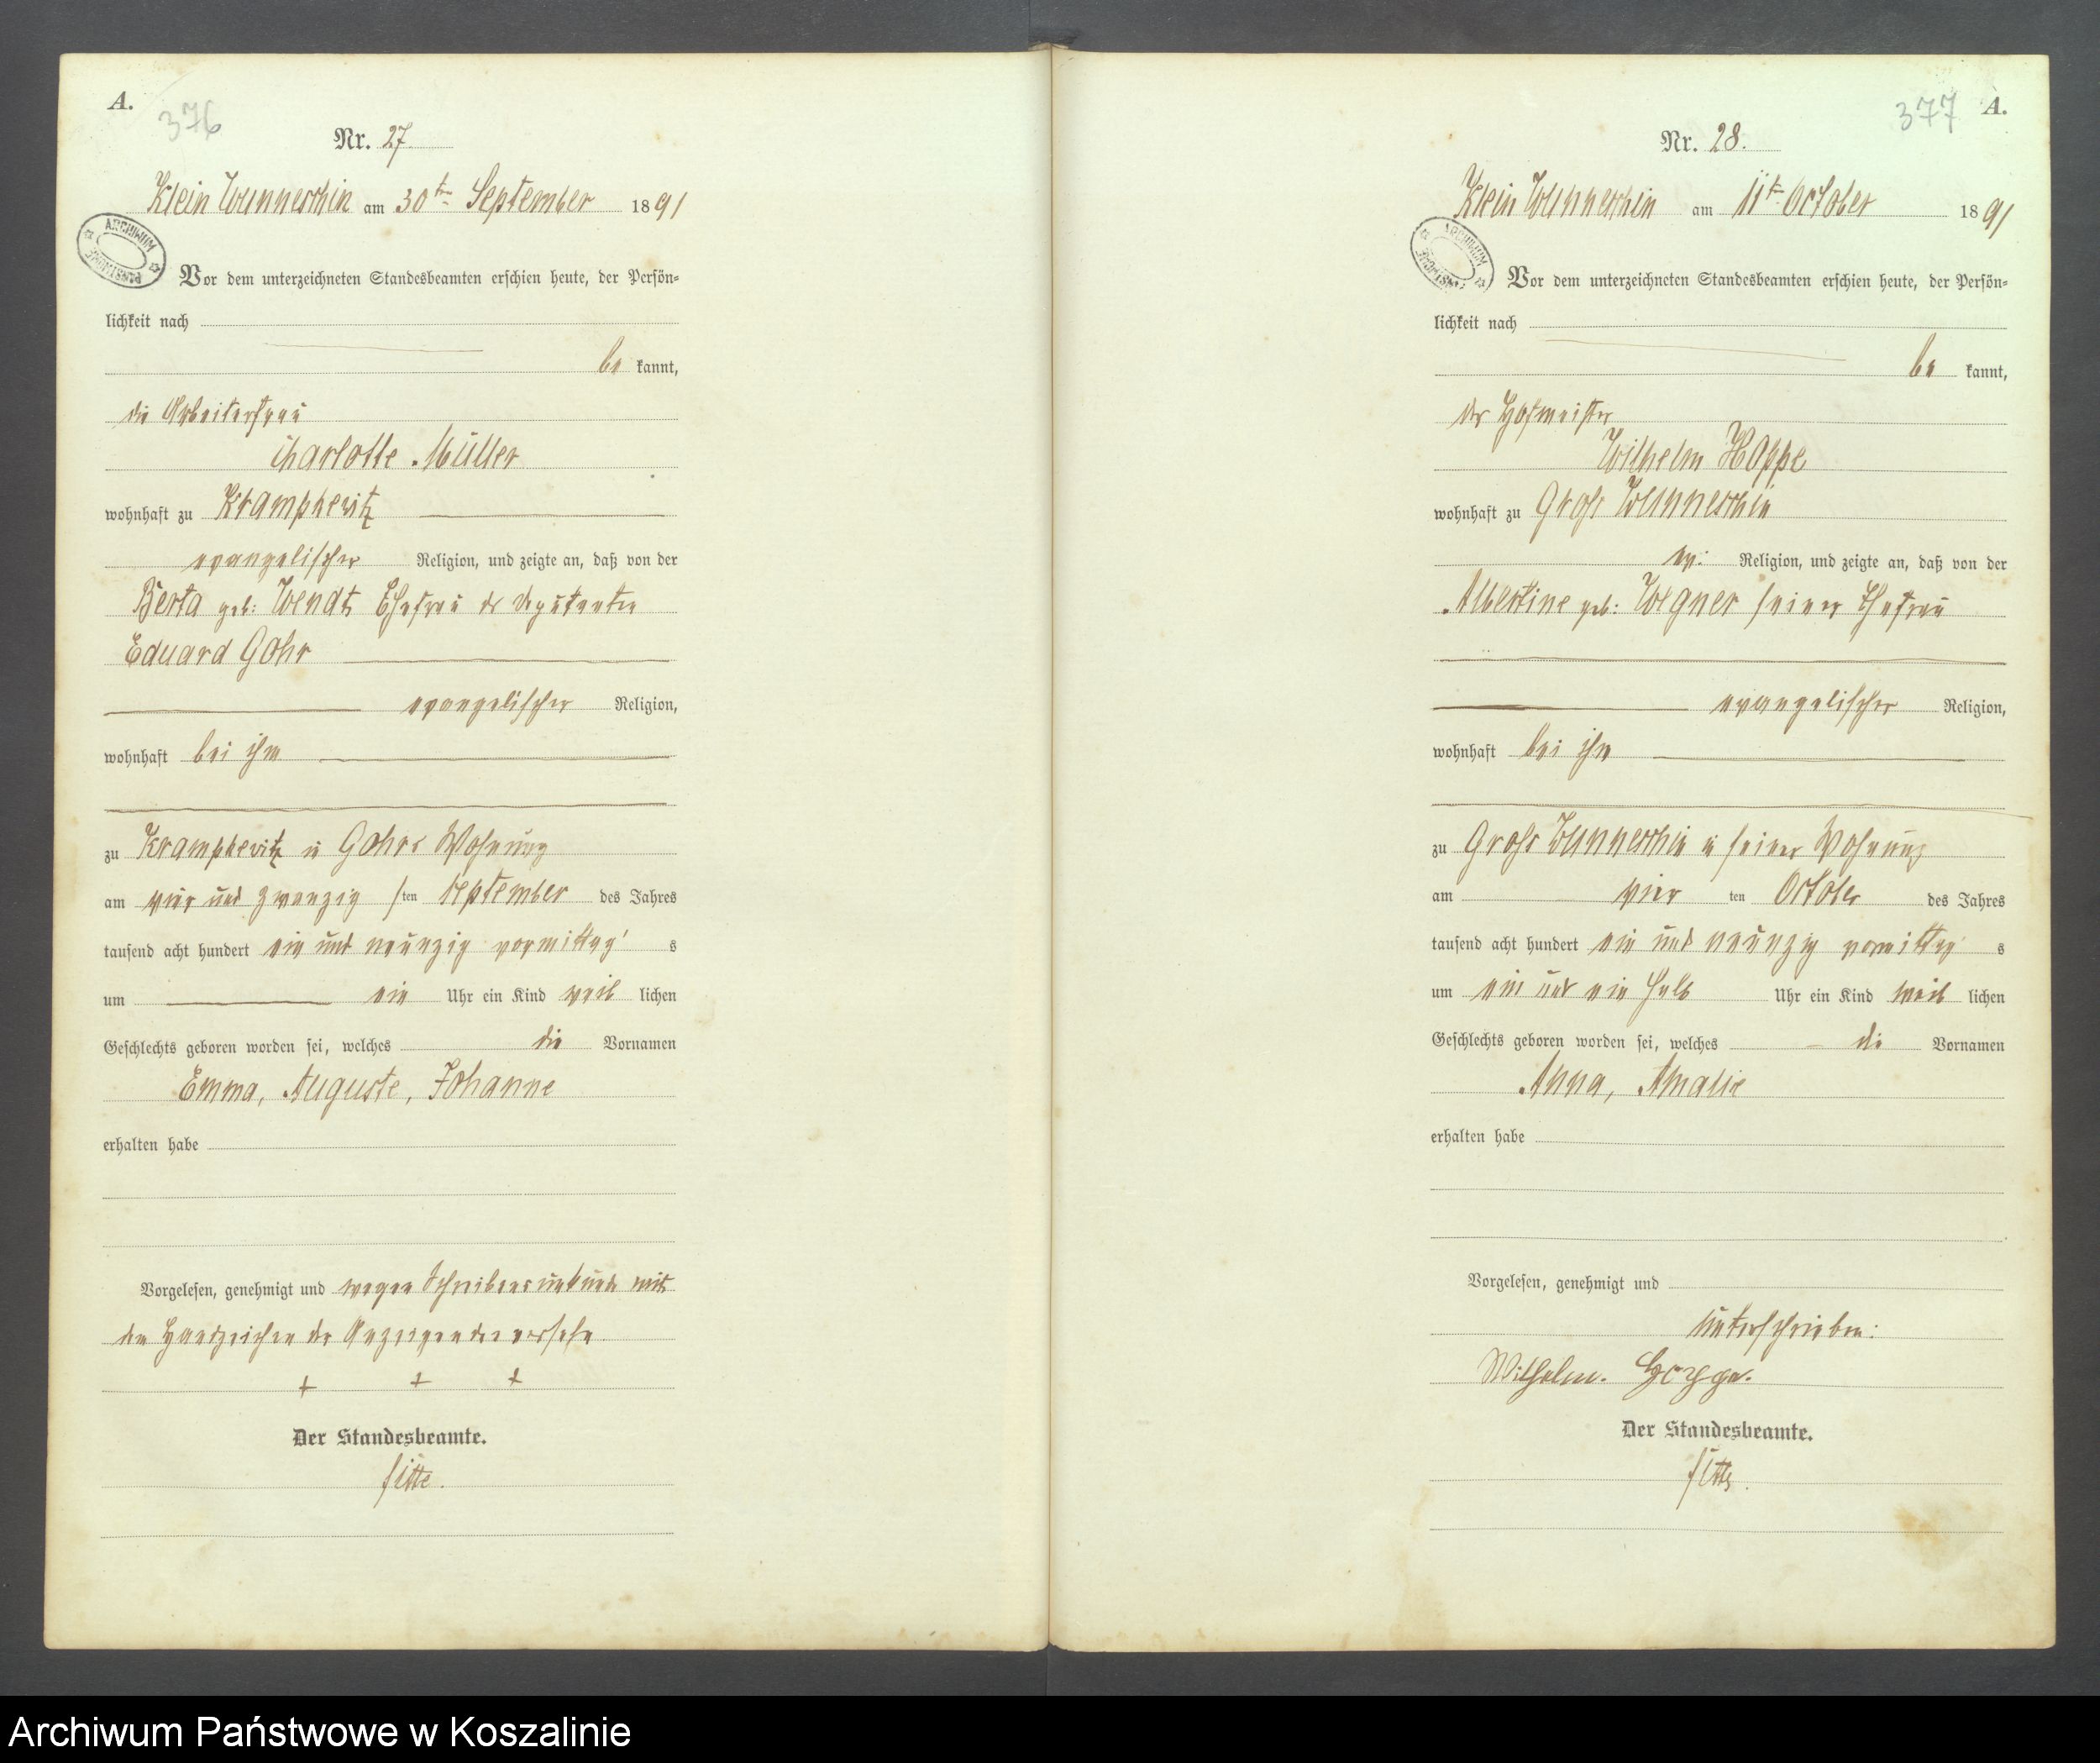 A.
376
Nr. 27.
Klein Wunneschin am 30t September 1891
ARCHIWUM PAŃSTWOWE
Vor dem unterzeichneten Standesbeamten erschien heute, der Persön-
lichkeit nach
be kannt,
die Arbeiterfrau
Charlotte Müller
wohnhaft zu Krampkewitz
evangelischer Religion, und zeigte an, daß von der
Berta geb: Wendt Ehefrau des Deputanten
Eduard Gohr
evangelischer Religion,
wohnhaft bei ihm
zu Krampkewitz in Gohrs Wohnung
am vier und zwanzig sten September des Jahres
tausend acht hundert ein und neunzig vormittags
um ein Uhr ein Kind weib lichen
Geschlechts geboren worden sei, welches die Vornamen
Emma, Auguste, Johanne
erhalten habe
Vorgelesen, genehmigt und wegen Schreibensunkunde mit
dem Handzeichen der Anzeigenden versehn
+ + +
Der Standesbeamte.
377
A.
Nr. 28.
Klein Wunneschin am 11t October 1891
ARCHIWUM
Vor dem unterzeichneten Standesbeamten erschien heute, der Persön-
lichkeit nach
be kannt,
der Hofmeister
Wilhelm Hoppe
wohnhaft zu Groß Wunneschin
ev: Religion, und zeigte an, daß von der
Albertine geb: Wegner seiner Ehefrau
evangelischer Religion,
wohnhaft bei ihm
zu Groß Wunneschin in seiner Wohnung
am vier ten October des Jahres
tausend acht hundert ein und neunzig vormittags
um ein und ein halb Uhr ein Kind weib lichen
Geschlechts geboren worden sei, welches die Vornamen
Anna, Amalie
erhalten habe
Vorgelesen, genehmigt und
unterschrieben:
Wilhelm. Hoppe.
Der Standesbeamte.
Archiwum Państwowe w Koszalinie